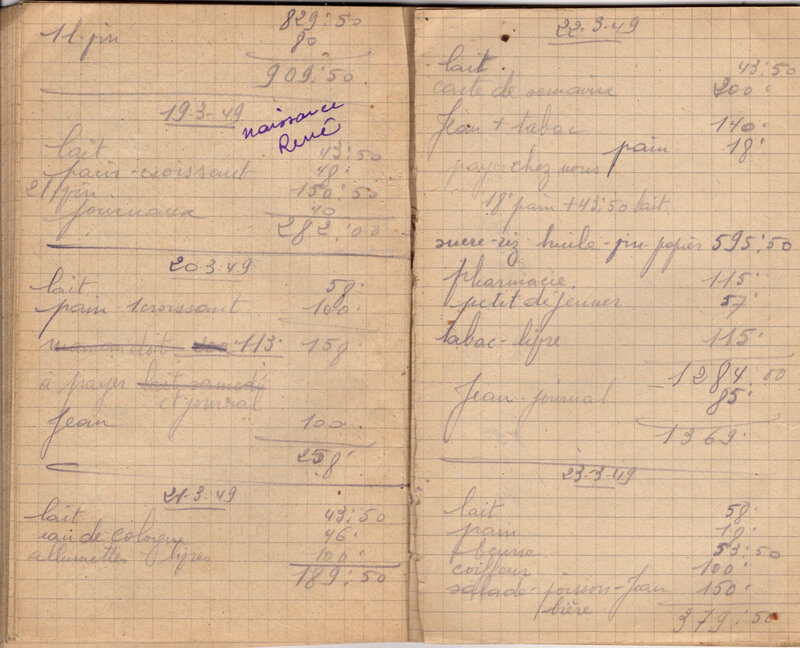 829:50
1 l. vin 80
909:50
19.3.49
naissance
René
lait 43:50
pain-croissant 48:
2 l vin 150:50
journaux 40
282:00
20.3.49
lait 58:
pain croissant 100:
maman doit 113: 158
à payer lait samedi
et journal
Jean 100
258:
21.3.49
lait 43:50
eau de cologne 46:
allumettes 100:
189:50
22.3.49
lait 43:50
carte de semaine 200:
Jean + tabac 140:
pain 18:
payer chez nous
18: pain + 43:50 lait
sucre-riz-huile-vin-papier 595:50
pharmacie. 115:
petit déjeuner 57:
tabac- 115:
1284:50
Jean-journal 85:
1369:
23-3-49
lait 58:
pain 18:
beurre 53:50
coiffeur 100:
salade-poisson-Jean 150:
bière
379:50